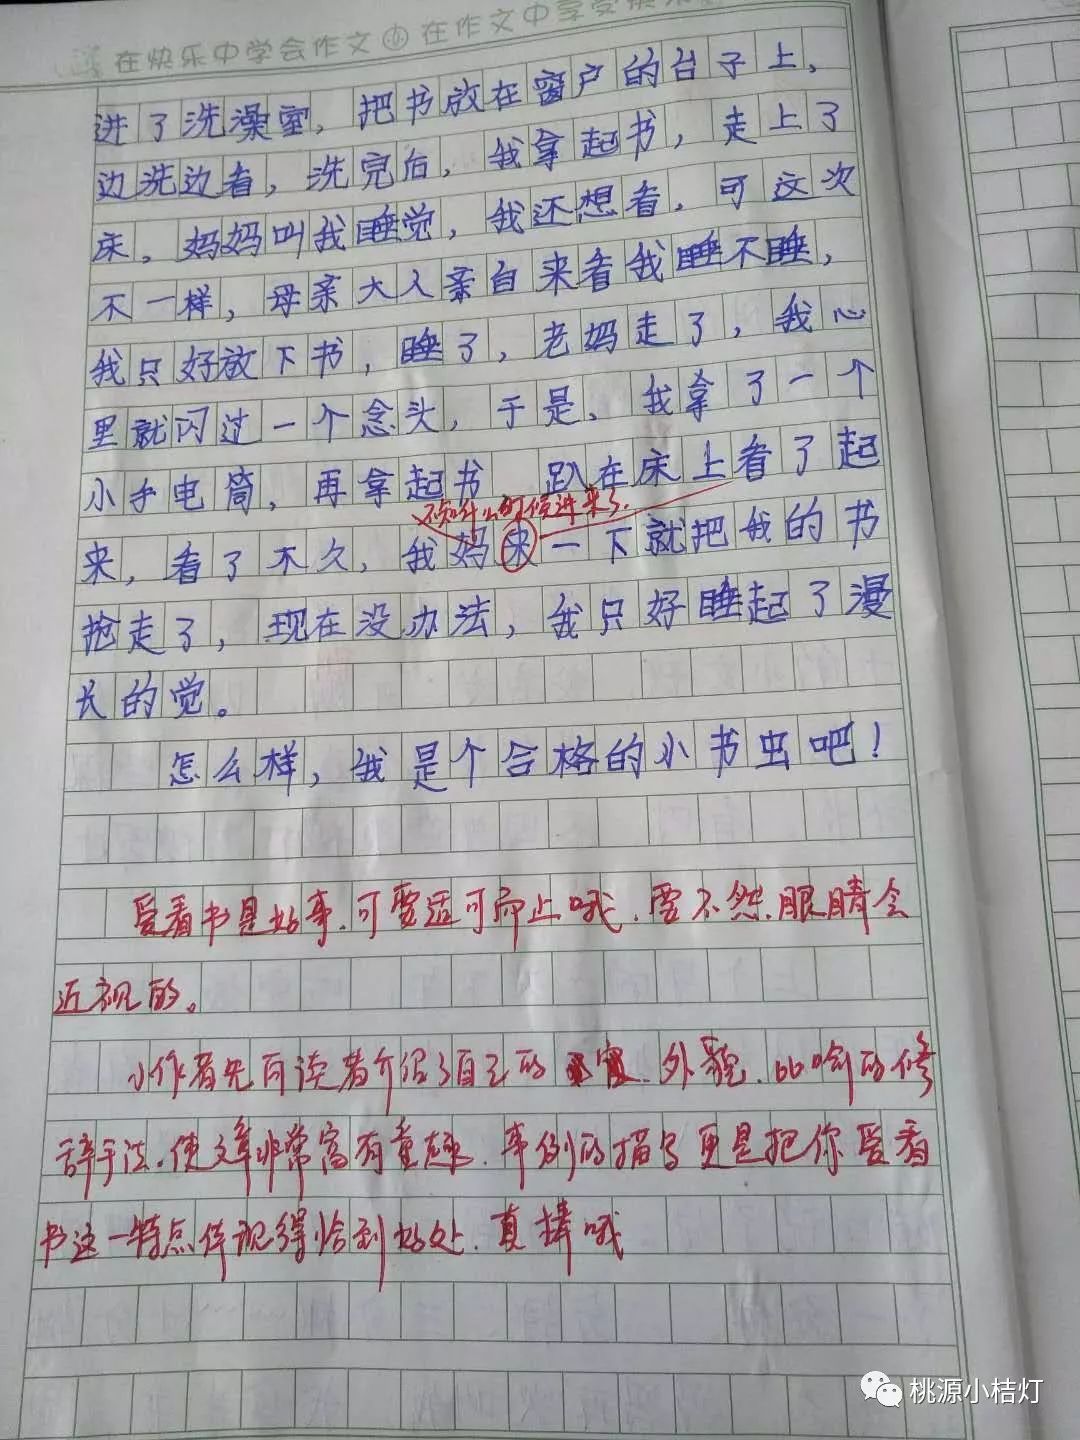 在快乐中学会作文 在作文中享受快乐
进了洗澡室，把书放在窗户的台子上，
边洗边看，洗完后，我拿起书，走上了
床，妈妈叫我睡觉，我还想看，可这次
不一样，母亲大人亲自来看我睡不睡，
我只好放下书，睡了，老妈走了，我心
里就闪过一个念头，于是、我拿了一个
小手电筒，再拿起书 趴在床上看了起
不知什么时候进来了.
来，看了不久，我妈来一下就把我的书
抢走了，现在没办法，我只好睡起了漫
长的觉。
怎么样，我是个合格的小书虫吧！
爱看书是好事.可要适可而止哦.要不然.眼睛会
近视的。
小作者先向读者介绍了自己的 外貌.比喻的修
辞手法.使文章非常富有童趣.事例的描写更是把你爱看
书这一特点体现得恰到好处.真棒哦
桃源小桔灯